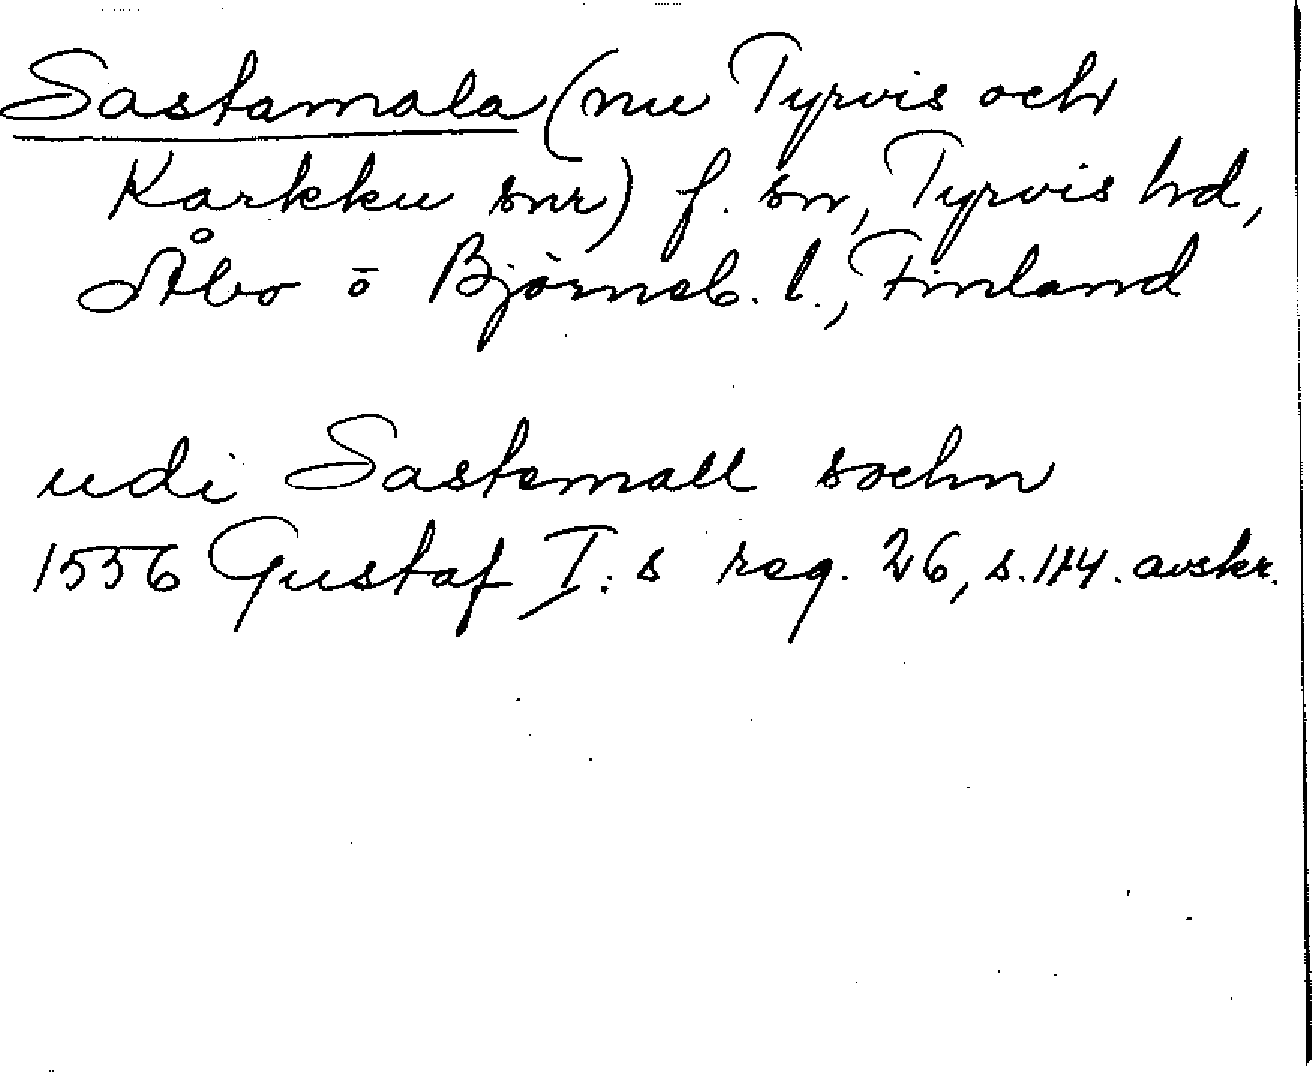 Sastamala (nu Tyrvis och
Karkku snr) f. sn, Tyrvis hd,
Åbo o Björneb. l., Finland
udi Sastamall sochn
1556 Gustaf I:s reg. 26, s. avskr.